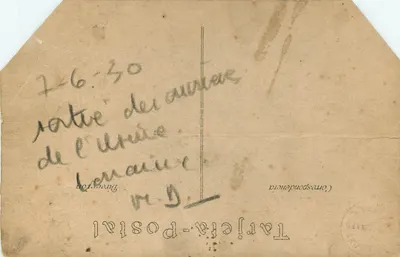 7-6.30
sortie des ouvriers
de l'Usine
Lorraine,
Dirección
Correspondencia
Tarjeta-Postal